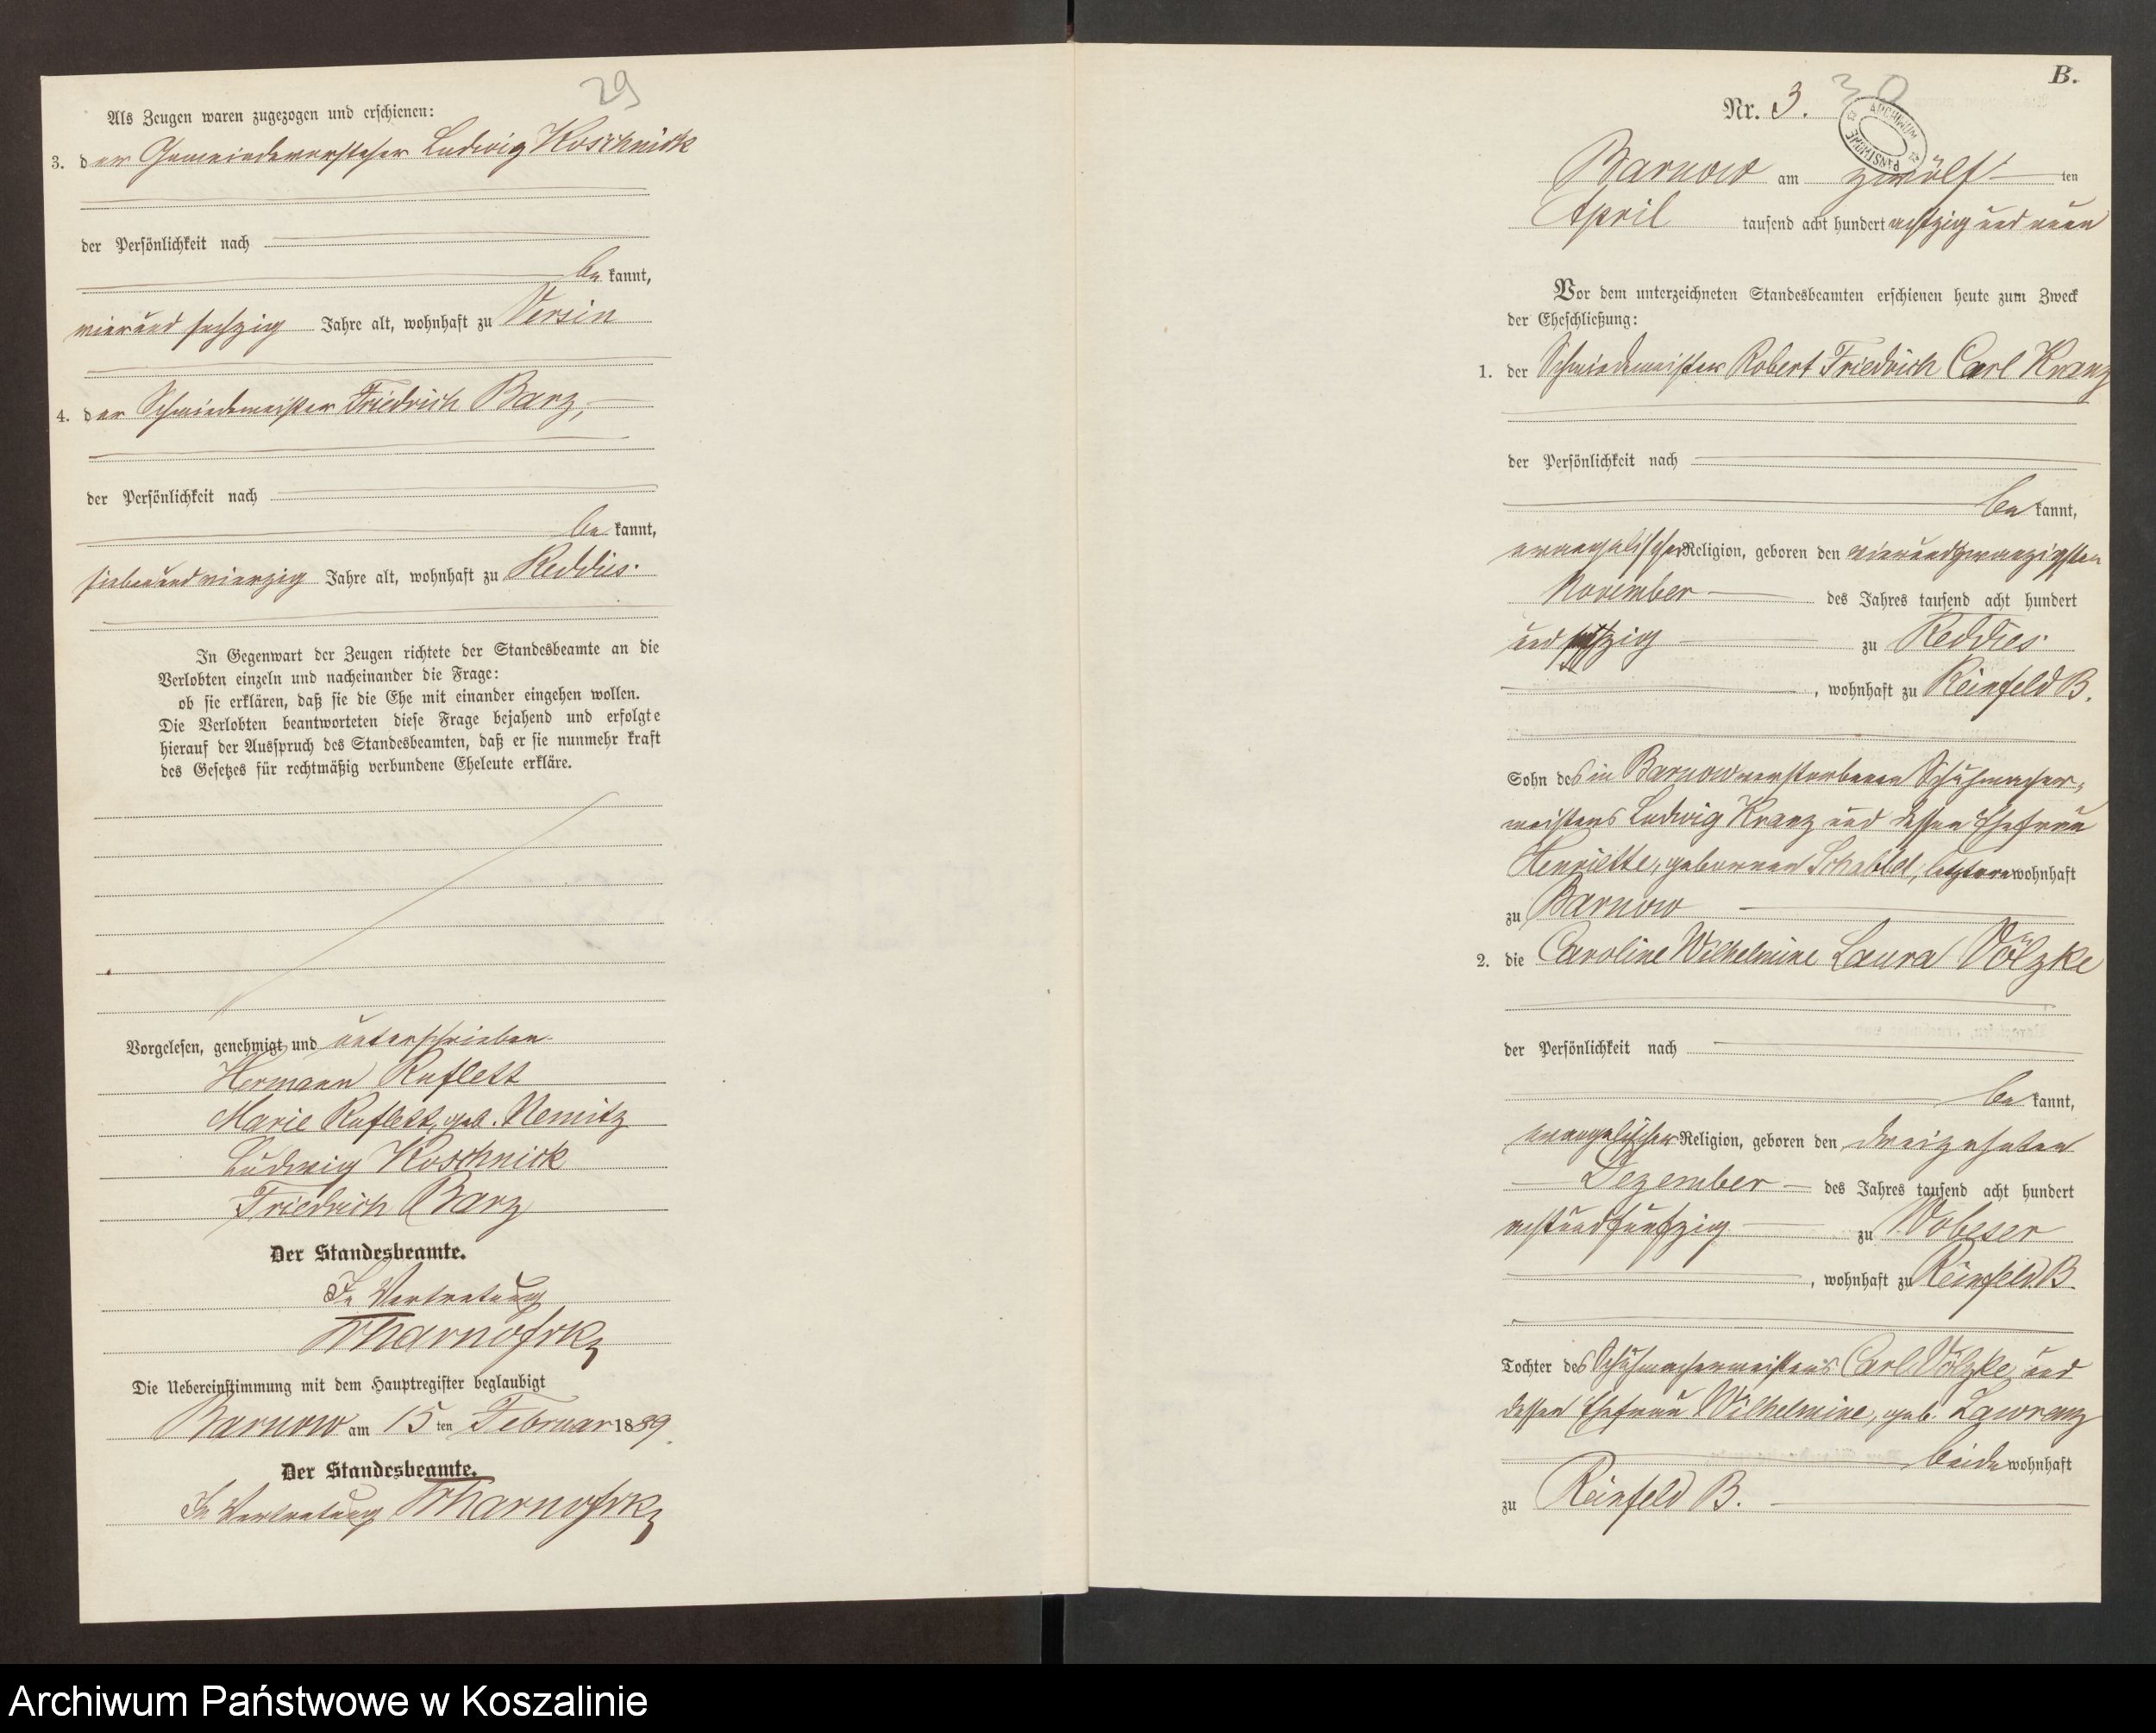 29
Als Zeugen waren zugezogen und erschienen:
3. der Gemeindevorsteher Ludwig Koschnick
der Persönlichkeit nach
be kannt,
vierund sechzig Jahre alt, wohnhaft zu Versin
4. der Schmiedemeister Friedrich Barz,
der Persönlichkeit nach
be kannt,
siebenundvierzig Jahre alt, wohnhaft zu Reddies.
In Gegenwart der Zeugen richtete der Standesbeamte an die
Verlobten einzeln und nacheinander die Frage:
ob sie erklären, daß sie die Ehe mit einander eingehen wollen.
Die Verlobten beantworteten diese Frage bejahend und erfolgte
hierauf der Ausspruch des Standesbeamten, daß er sie nunmehr kraft
des Gesetzes für rechtmäßig verbundene Eheleute erkläre.
Vorgelesen, genehmigt und unterschrieben
Hermann Ruflett
Marie Ruflett, geb. Nemitz
Ludwig Koschnick
Friedrich Barz
Der Standesbeamte.
In Vertretung
Die Uebereinstimmung mit dem Hauptregister beglaubigt
Barnow am 15 ten Februar 1889.
Der Standesbeamte.
In Vertretung
B.
Nr. 3. 30
ARCHIWUM PAŃSTWOWE
Barnow am zwölf ten
April tausend acht hundert achtzig und neun
Vor dem unterzeichneten Standesbeamten erschienen heute zum Zweck
der Eheschließung:
1. der Schmiedemeister Robert Friedrich Carl Kranz
der Persönlichkeit nach
be kannt,
evangelischer Religion, geboren den vierundzwanzigsten
November des Jahres tausend acht hundert
und zu Reddies
, wohnhaft zu Reinfeld B.
Sohn des in Barnow verstorbenen Schuhmacher-
meisters Ludwig Kranz und dessen Ehefrau
Henriette, geborenen letztere wohnhaft
zu Barnow
2. die Caroline Wilhelmine Laura Völzke
der Persönlichkeit nach
be kannt,
evangelischer Religion, geboren den dreizehnten
Dezember des Jahres tausend acht hundert
achtundfünfzig zu Wobeser
, wohnhaft zu Reinfeld B.
Tochter des Schuhmachermeisters Carl Völzke und
dessen Ehefrau Wilhelmine, geb. Lawrenz
beide wohnhaft
zu Reinfeld B.
Archiwum Państwowe w Koszalinie